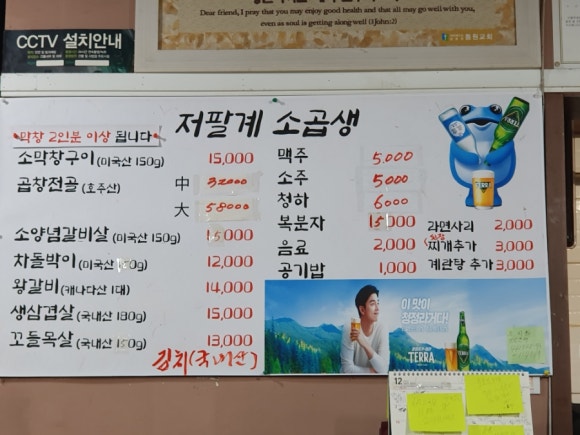 Dear friend, I pray that you may enjoy good health and that all may go well with you,
even as soul is getting along well (3John:2)
CCTV 설치안내
저팔계 소곱생
막창 2인분 이상 됩니다
소막창구이 (미국산 150g) 15,000
곱창전골 (호주산) 中 32000
大 58000
소양념갈비살 (미국산 150g) 15,000
차돌박이 (미국산 150g) 12,000
왕갈비 (캐나다산 1대) 14,000
생삼겹살 (국내산 180g) 15,000
꼬들목살 (국내산 150g) 13,000
김치(국내산)
맥주 5,000
소주 5000
청하 6000
복분자 15,000
음료 2,000
공기밥 1,000
라면사리 2,000
된장
찌개추가 3,000
계란탕 추가 3,000
이 맛이
청정라거다!
TERRA
TERRA
12